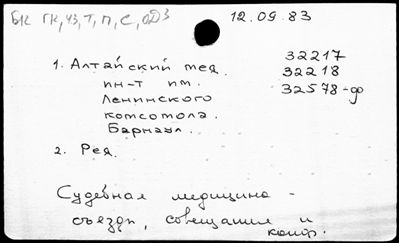 БК ГК, ЧЗ, Т, П, С, ОДЗ 12.09.83
1. Алтайский мед. 32217
ин-т им. 32218
Ленинского 32578-ф
комсомола.
Барнаул.
2. Ред.
Судебная медицина -
съезды, совещания и
конф.